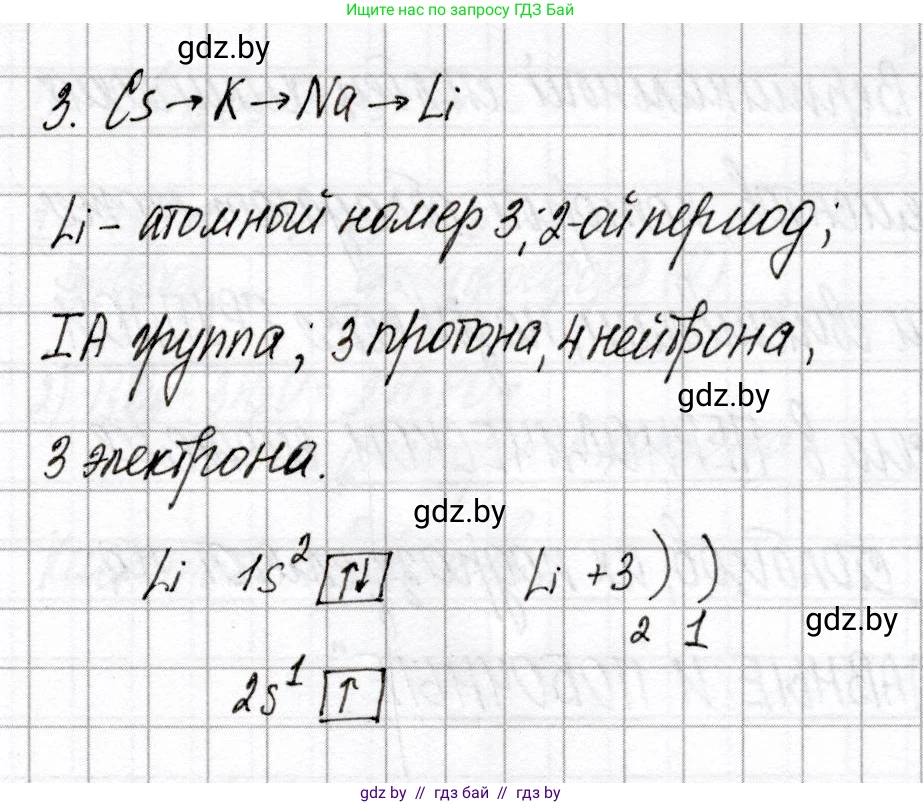 Ищите нас по запросу ГДЗ Бай
gdz.by
3. Cs → K → Na → Li
Li – атомный номер 3; 2-ой период;
IA группа; 3 протона, 4 нейтрона,
gdz.by
3 электрона.
gdz.by
Li 1s² ↑↓ Li +3 ) )
gdz.by
2 1
2s¹ ↑
gdz.by // гдз бай // гдз by